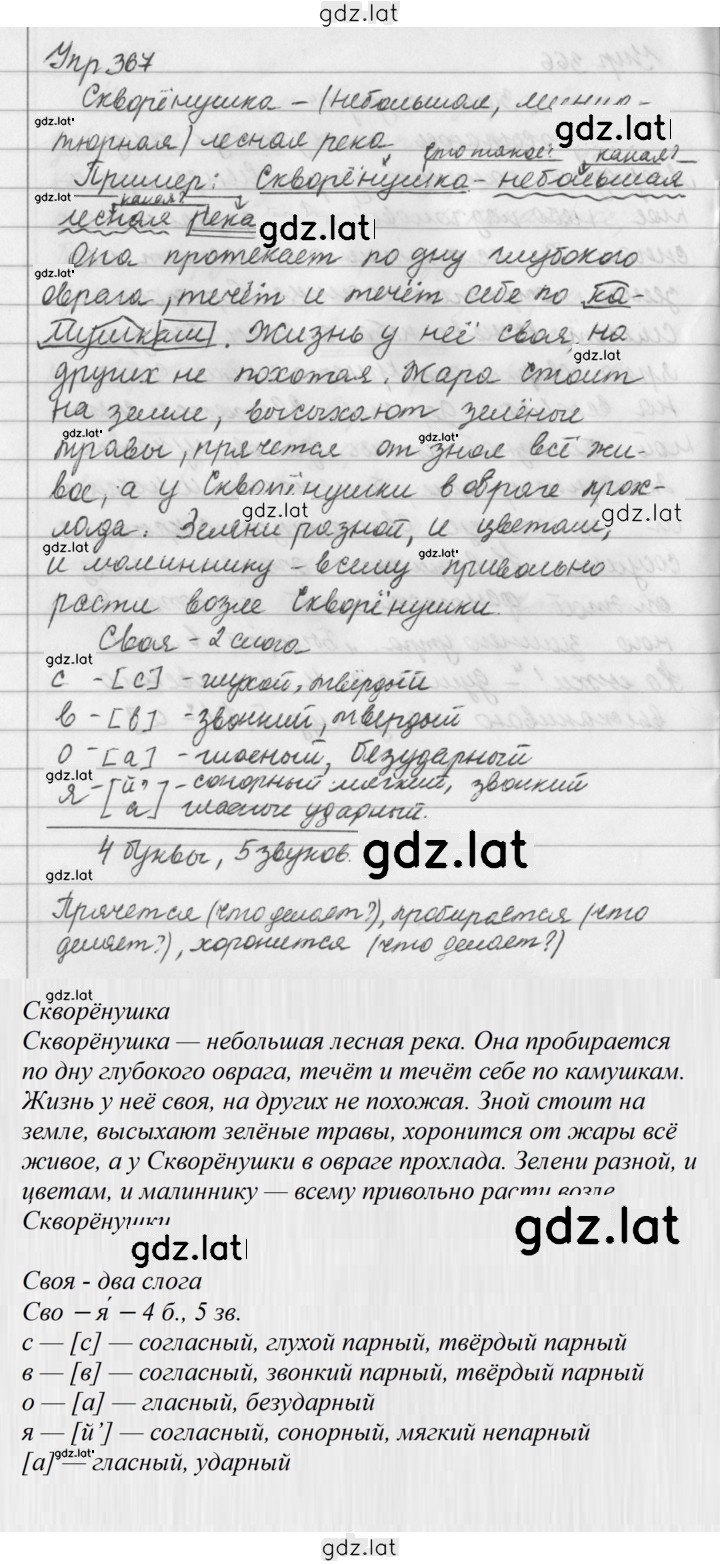 gdz.lat
Упр 367
Скворёнушка – (небольшая,
gdz.lat
gdz.lat
тюрная) лесная река
что такое? какая?
Пример: Скворёнушка - небольшая
gdz.lat
какая?
лесная река
gdz.lat
Она протекает по дну глубокого
gdz.lat
оврага, течёт и течёт себе по ка-
мушкам. Жизнь у неё своя на
gdz.lat
других не похожая. Жара стоит
на земле, высыхают зелёные
gdz.lat
gdz.lat
травы, прячется от зноя всё жи-
вое, а у Скворёнушки в овраге прох-
gdz.lat
gdz.lat
лада. Зелени разной, и цветам,
gdz.lat
gdz.lat
и малиннику – всему привольно
расти возле Скворёнушки.
Своя – 2 слога
gdz.lat
с - [с] - глухой, твёрдый
в - [в] - звонкий, твердый
gdz.lat
о - [а] - гласный, безударный
я - [й' - сонорный мягкий, звонкий
а] гласные ударный.
4 буквы, 5 звуков.
gdz.lat
gdz.lat
Прячется (что делает?), пробирается (что
делает?), хоронится (что делает?)
gdz.lat
Скворёнушка
Скворёнушка — небольшая лесная река. Она пробирается
по дну глубокого оврага, течёт и течёт себе по камушкам.
Жизнь у неё своя, на других не похожая. Зной стоит на
земле, высыхают зелёные травы, хоронится от жары всё
живое, а у Скворёнушки в овраге прохлада. Зелени разной, и
цветам, и малиннику — всему привольно расти возле
Скворёнушки
gdz.lat
gdz.lat
Своя - два слога
Сво − я́ − 4 б., 5 зв.
с — [с] — согласный, глухой парный, твёрдый парный
в — [в] — согласный, звонкий парный, твёрдый парный
о — [а] — гласный, безударный
я — [й’] — согласный, сонорный, мягкий непарный
[а] — гласный, ударный
gdz.lat
gdz.lat